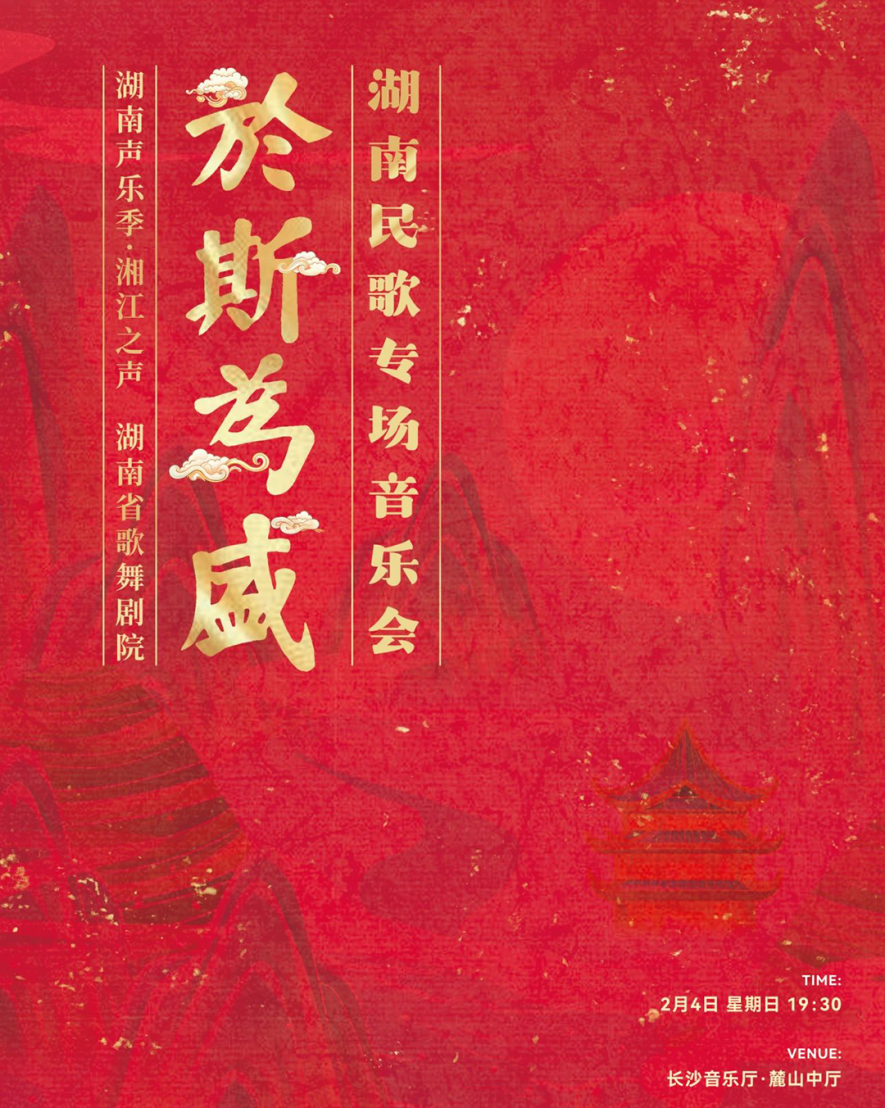 湖南民歌专场音乐会
於斯為盛
湖南声乐季·湘江之声 湖南省歌舞剧院
TIME:
2月4日 星期日 19:30
VENUE:
长沙音乐厅·麓山中厅